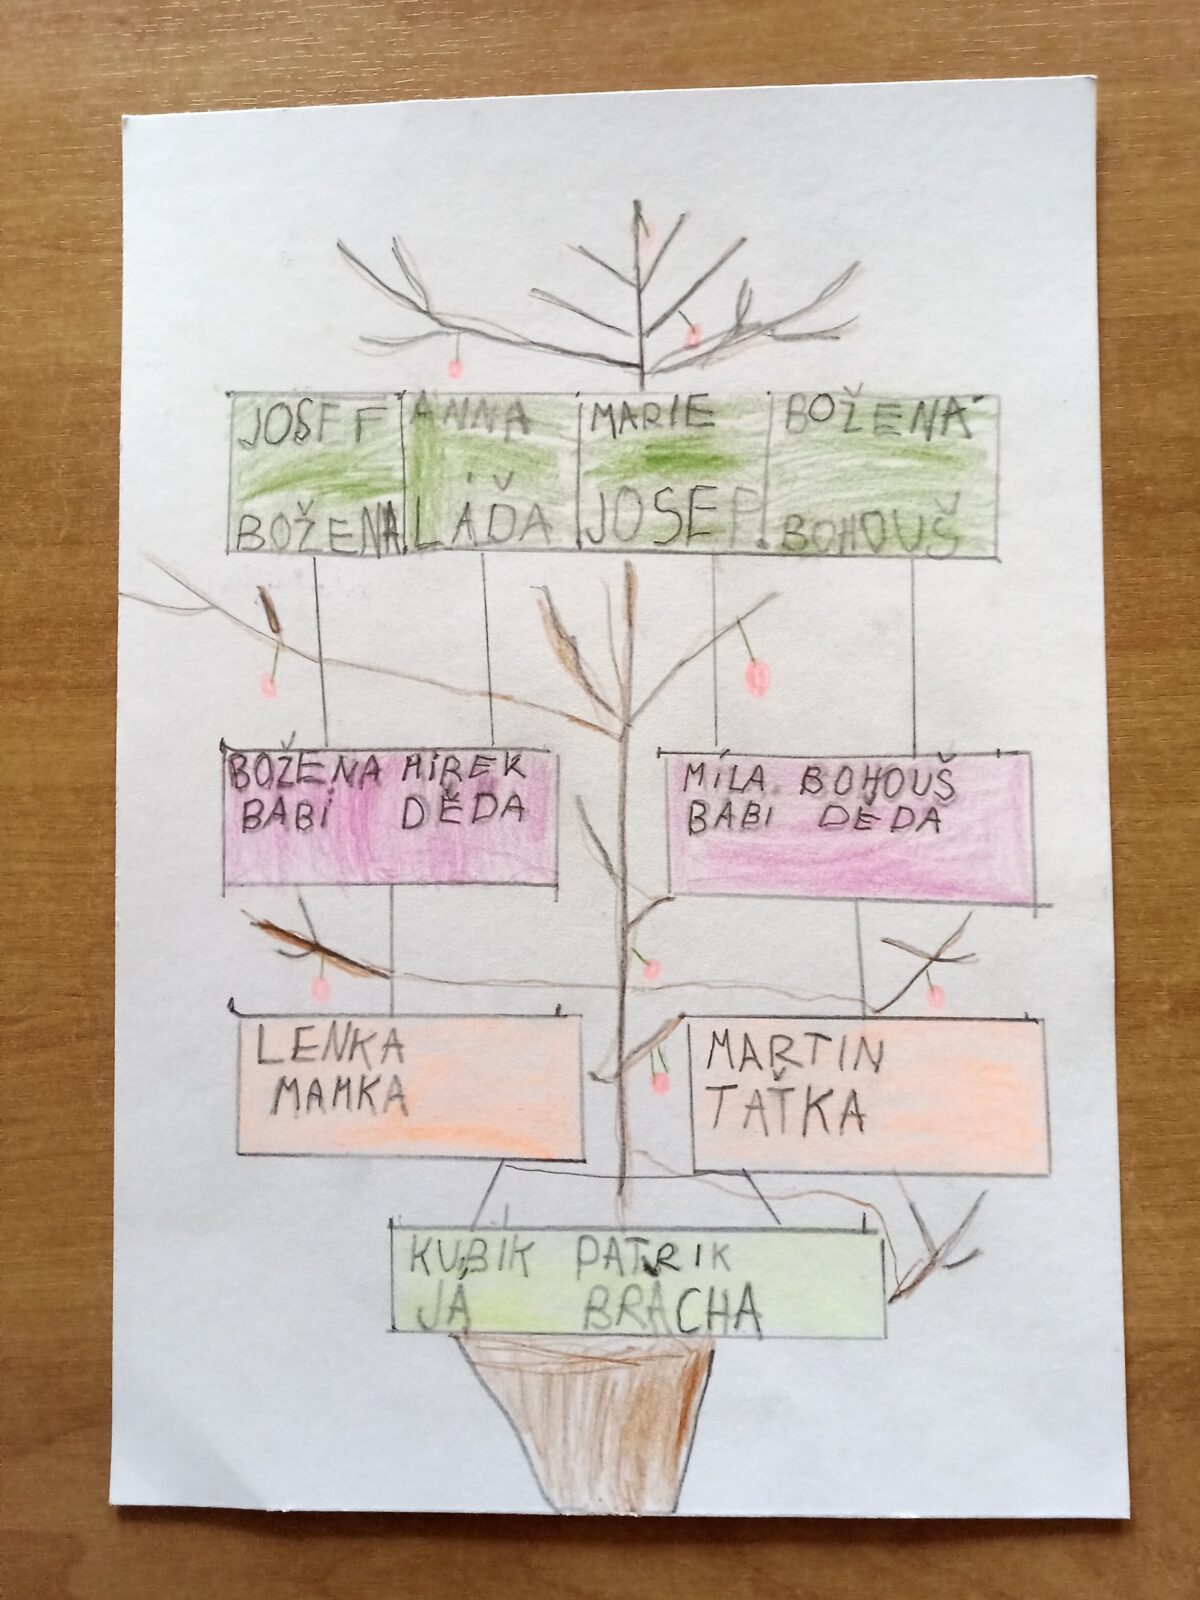 JOSEF ANNA MARIE BOŽENA
BOŽENA LÁĎA JOSEF BOHOUŠ
BOŽENA MIREK
BABI DĚDA
MÍLA BOHOUŠ
BABI DĚDA
LENKA
MAMKA
MARTIN
TAŤKA
KUBIK PATRIK
JÁ BRÁCHA